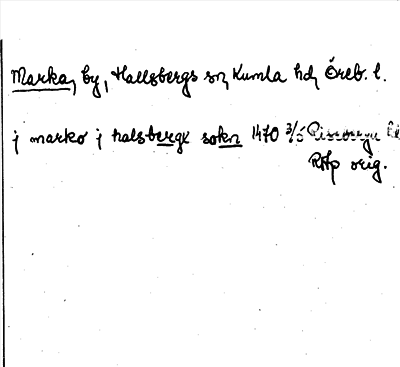 Marka, by, Hallsbergs sn, Kumla hd, Öreb. l.
j marko j halsbergx sokn 1470 3/5 Riseberga
RAp orig.